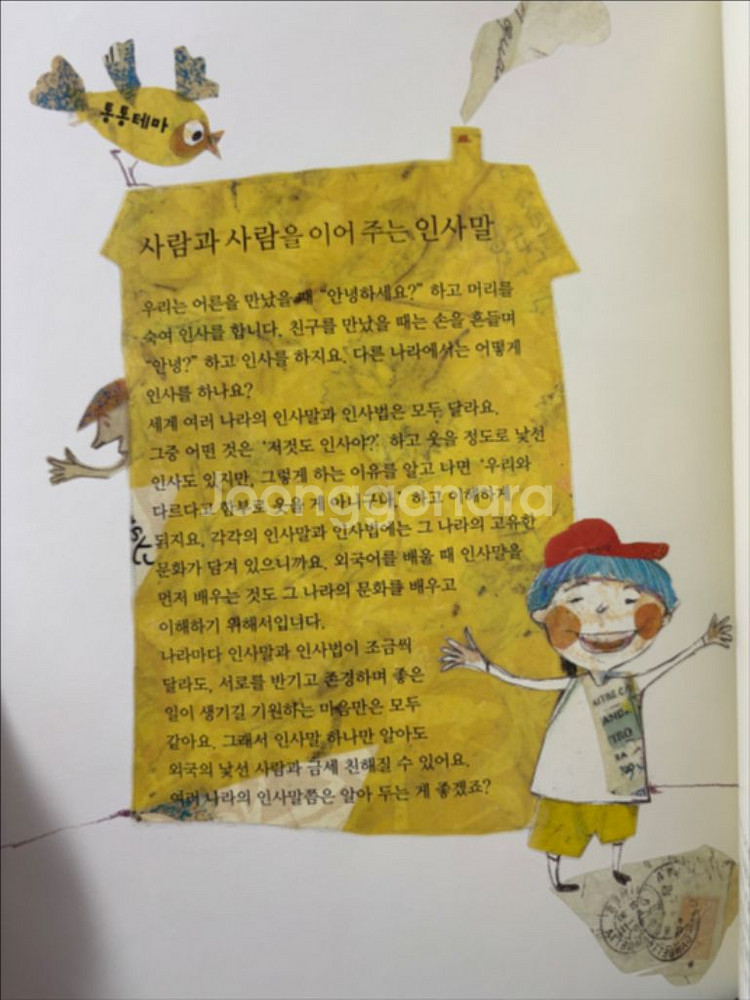 통통테마
사람과 사람을 이어 주는 인사말
우리는 어른을 만났을 때 “안녕하세요?” 하고 머리를
숙여 인사를 합니다. 친구를 만났을 때는 손을 흔들며
“안녕?” 하고 인사를 하지요. 다른 나라에서는 어떻게
인사를 하나요?
세계 여러 나라의 인사말과 인사법은 모두 달라요.
그중 어떤 것은 ‘저것도 인사야?’ 하고 웃을 정도로 낯선
인사도 있지만, 그렇게 하는 이유를 알고 나면 ‘우리와
다르다고 함부로 웃을 게 아니구나.’ 하고 이해하게
되지요. 각각의 인사말과 인사법에는 그 나라의 고유한
문화가 담겨 있으니까요. 외국어를 배울 때 인사말을
먼저 배우는 것도 그 나라의 문화를 배우고
이해하기 위해서입니다.
나라마다 인사말과 인사법이 조금씩
달라도, 서로를 반기고 존경하며 좋은
일이 생기길 기원하는 마음만은 모두
같아요. 그래서 인사말 하나만 알아도
외국의 낯선 사람과 금세 친해질 수 있어요.
여러 나라의 인사말쯤은 알아 두는 게 좋겠죠?
Joonggonara